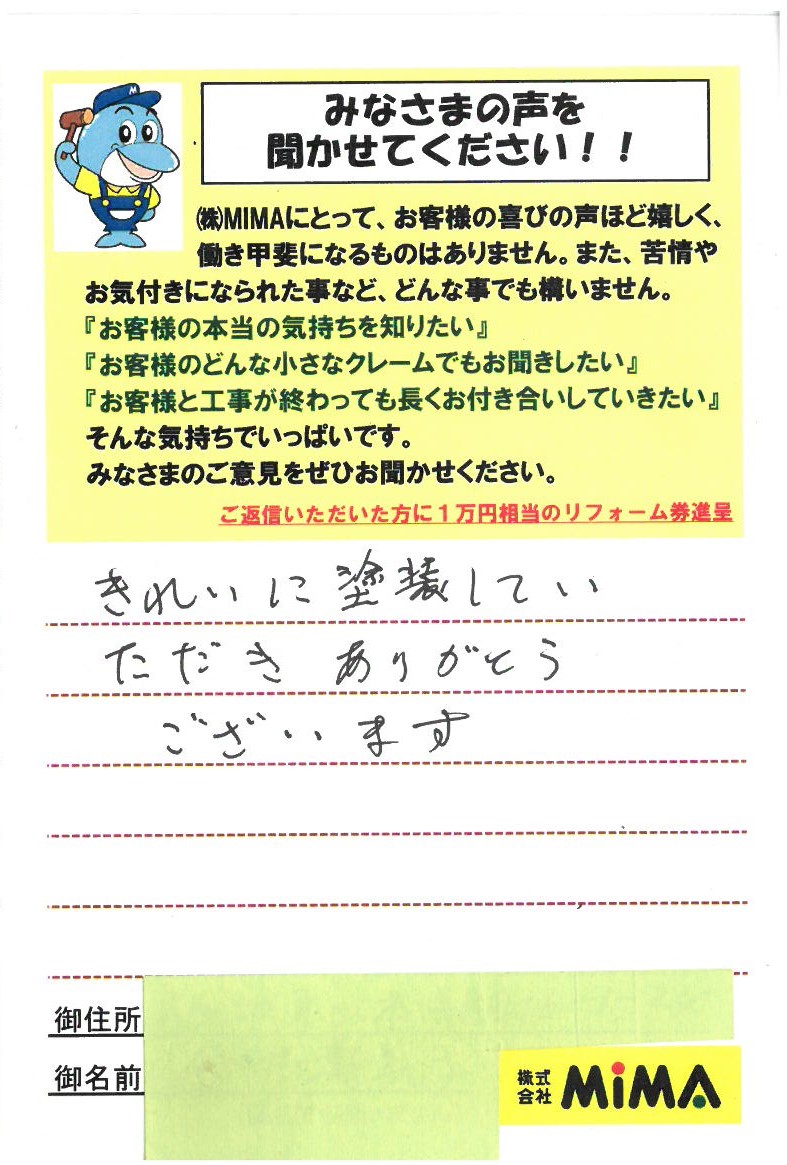 みなさまの声を
聞かせてください！！
㈱MIMAにとって、お客様の喜びの声ほど嬉しく、
働き甲斐になるものはありません。また、苦情や
お気付きになられた事など、どんな事でも構いません。
『お客様の本当の気持ちを知りたい』
『お客様のどんな小さなクレームでもお聞きしたい』
『お客様と工事が終わっても長くお付き合いしていきたい』
そんな気持ちでいっぱいです。
みなさまのご意見をぜひお聞かせください。
ご返信いただいた方に１万円相当のリフォーム券進呈
きれいに塗装してい
ただき ありがとう
ございます
御住所
御名前
株式会社 MiMA